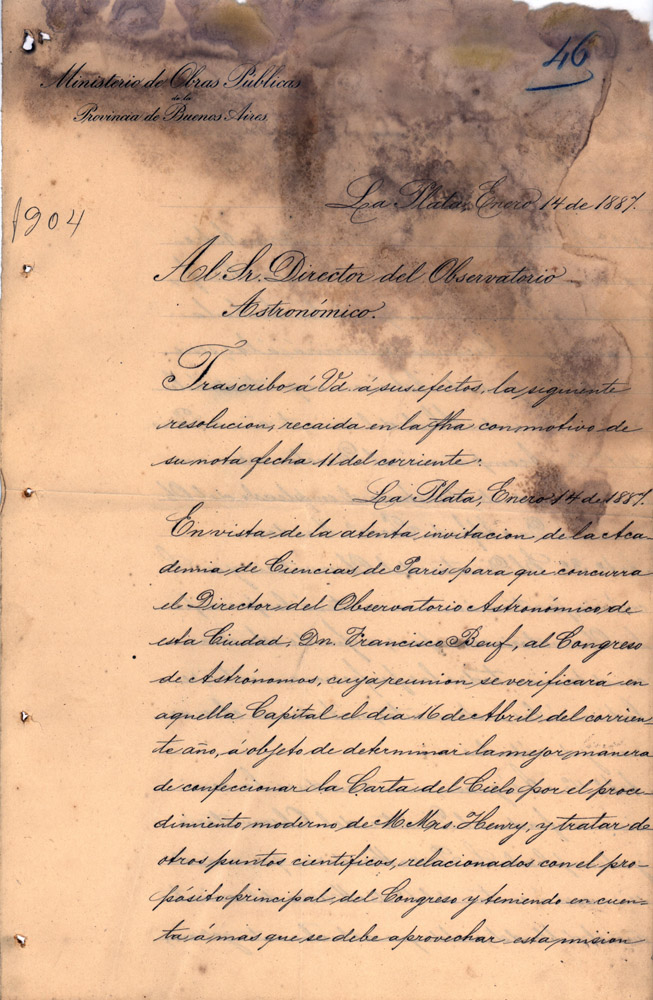 46
Ministerio de Obras Públicas
de la
Provincia de Buenos Aires
La Plata, Enero 14 de 1887.
1904
Al Sr. Director del Observatorio
Astronómico.
Trascribo á Vd. á sus efectos, la siguiente
resolucion, recaida en la fha con motivo de
su nota fecha 11 del corriente:
La Plata, Enero 14 de 1887.
En vista de la atenta invitacion de la Aca-
demia de Ciencias de Paris para que concurra
el Director del Observatorio Astronómico de
esta Ciudad, Dn. Francisco Beuf, al Congreso
de Astrónomos, cuya reunion se verificará en
aquella Capital el dia 16 de Abril del corrien-
te año, á objeto de determinar la mejor manera
de confeccionar la Carta del Cielo por el proce-
dimiento moderno de M. Mrs. Henry, y tratar de
otros puntos científicos, relacionados con el pro-
pósito principal del Congreso y teniendo en cuen-
ta, á mas que se debe aprovechar esta mision